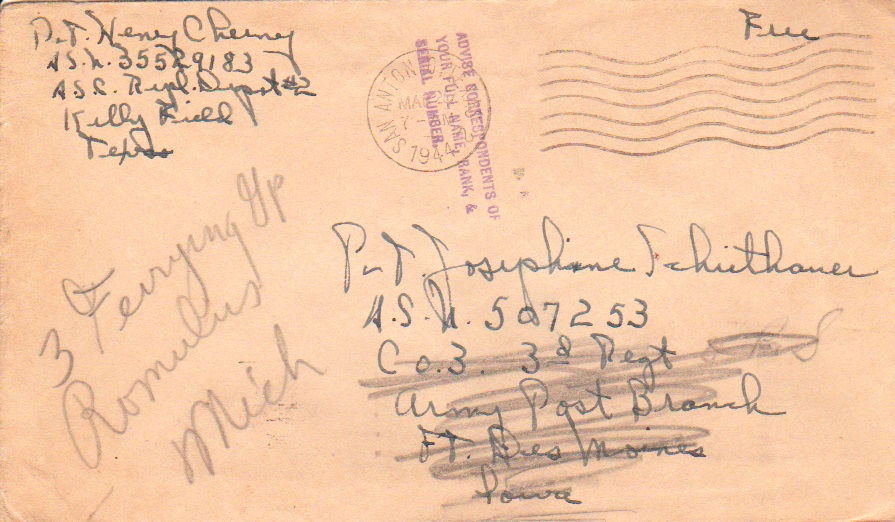 Pvt. Henry Cheney
A.S.N. 35529183
A.S.C. Repl. Depot #2
Kelly Field
Texas
Free
SAN ANTON
MAR
7-
1944
ADVISE CORRESPONDENTS OF
YOUR FULL NAME, RANK, &
SERIAL NUMBER.
Pvt. Josephine
A.S.N. 507253
Co. 3. 3d Regt
Army Post Branch
Ft. Des Moines
Iowa
3 Ferrying Gp
Romulus
Mich